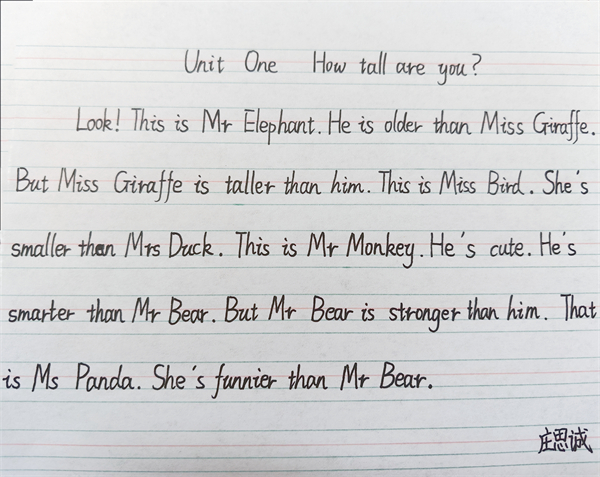 Unit One How tall are you?
Look! This is Mr Elephant. He is older than Miss Giraffe.
But Miss Giraffe is taller than him. This is Miss Bird. She's
smaller than Mrs Duck. This is Mr Monkey. He's cute. He's
smarter than Mr Bear. But Mr Bear is stronger than him. That
is Ms Panda. She's funnier than Mr Bear.
庄思诚